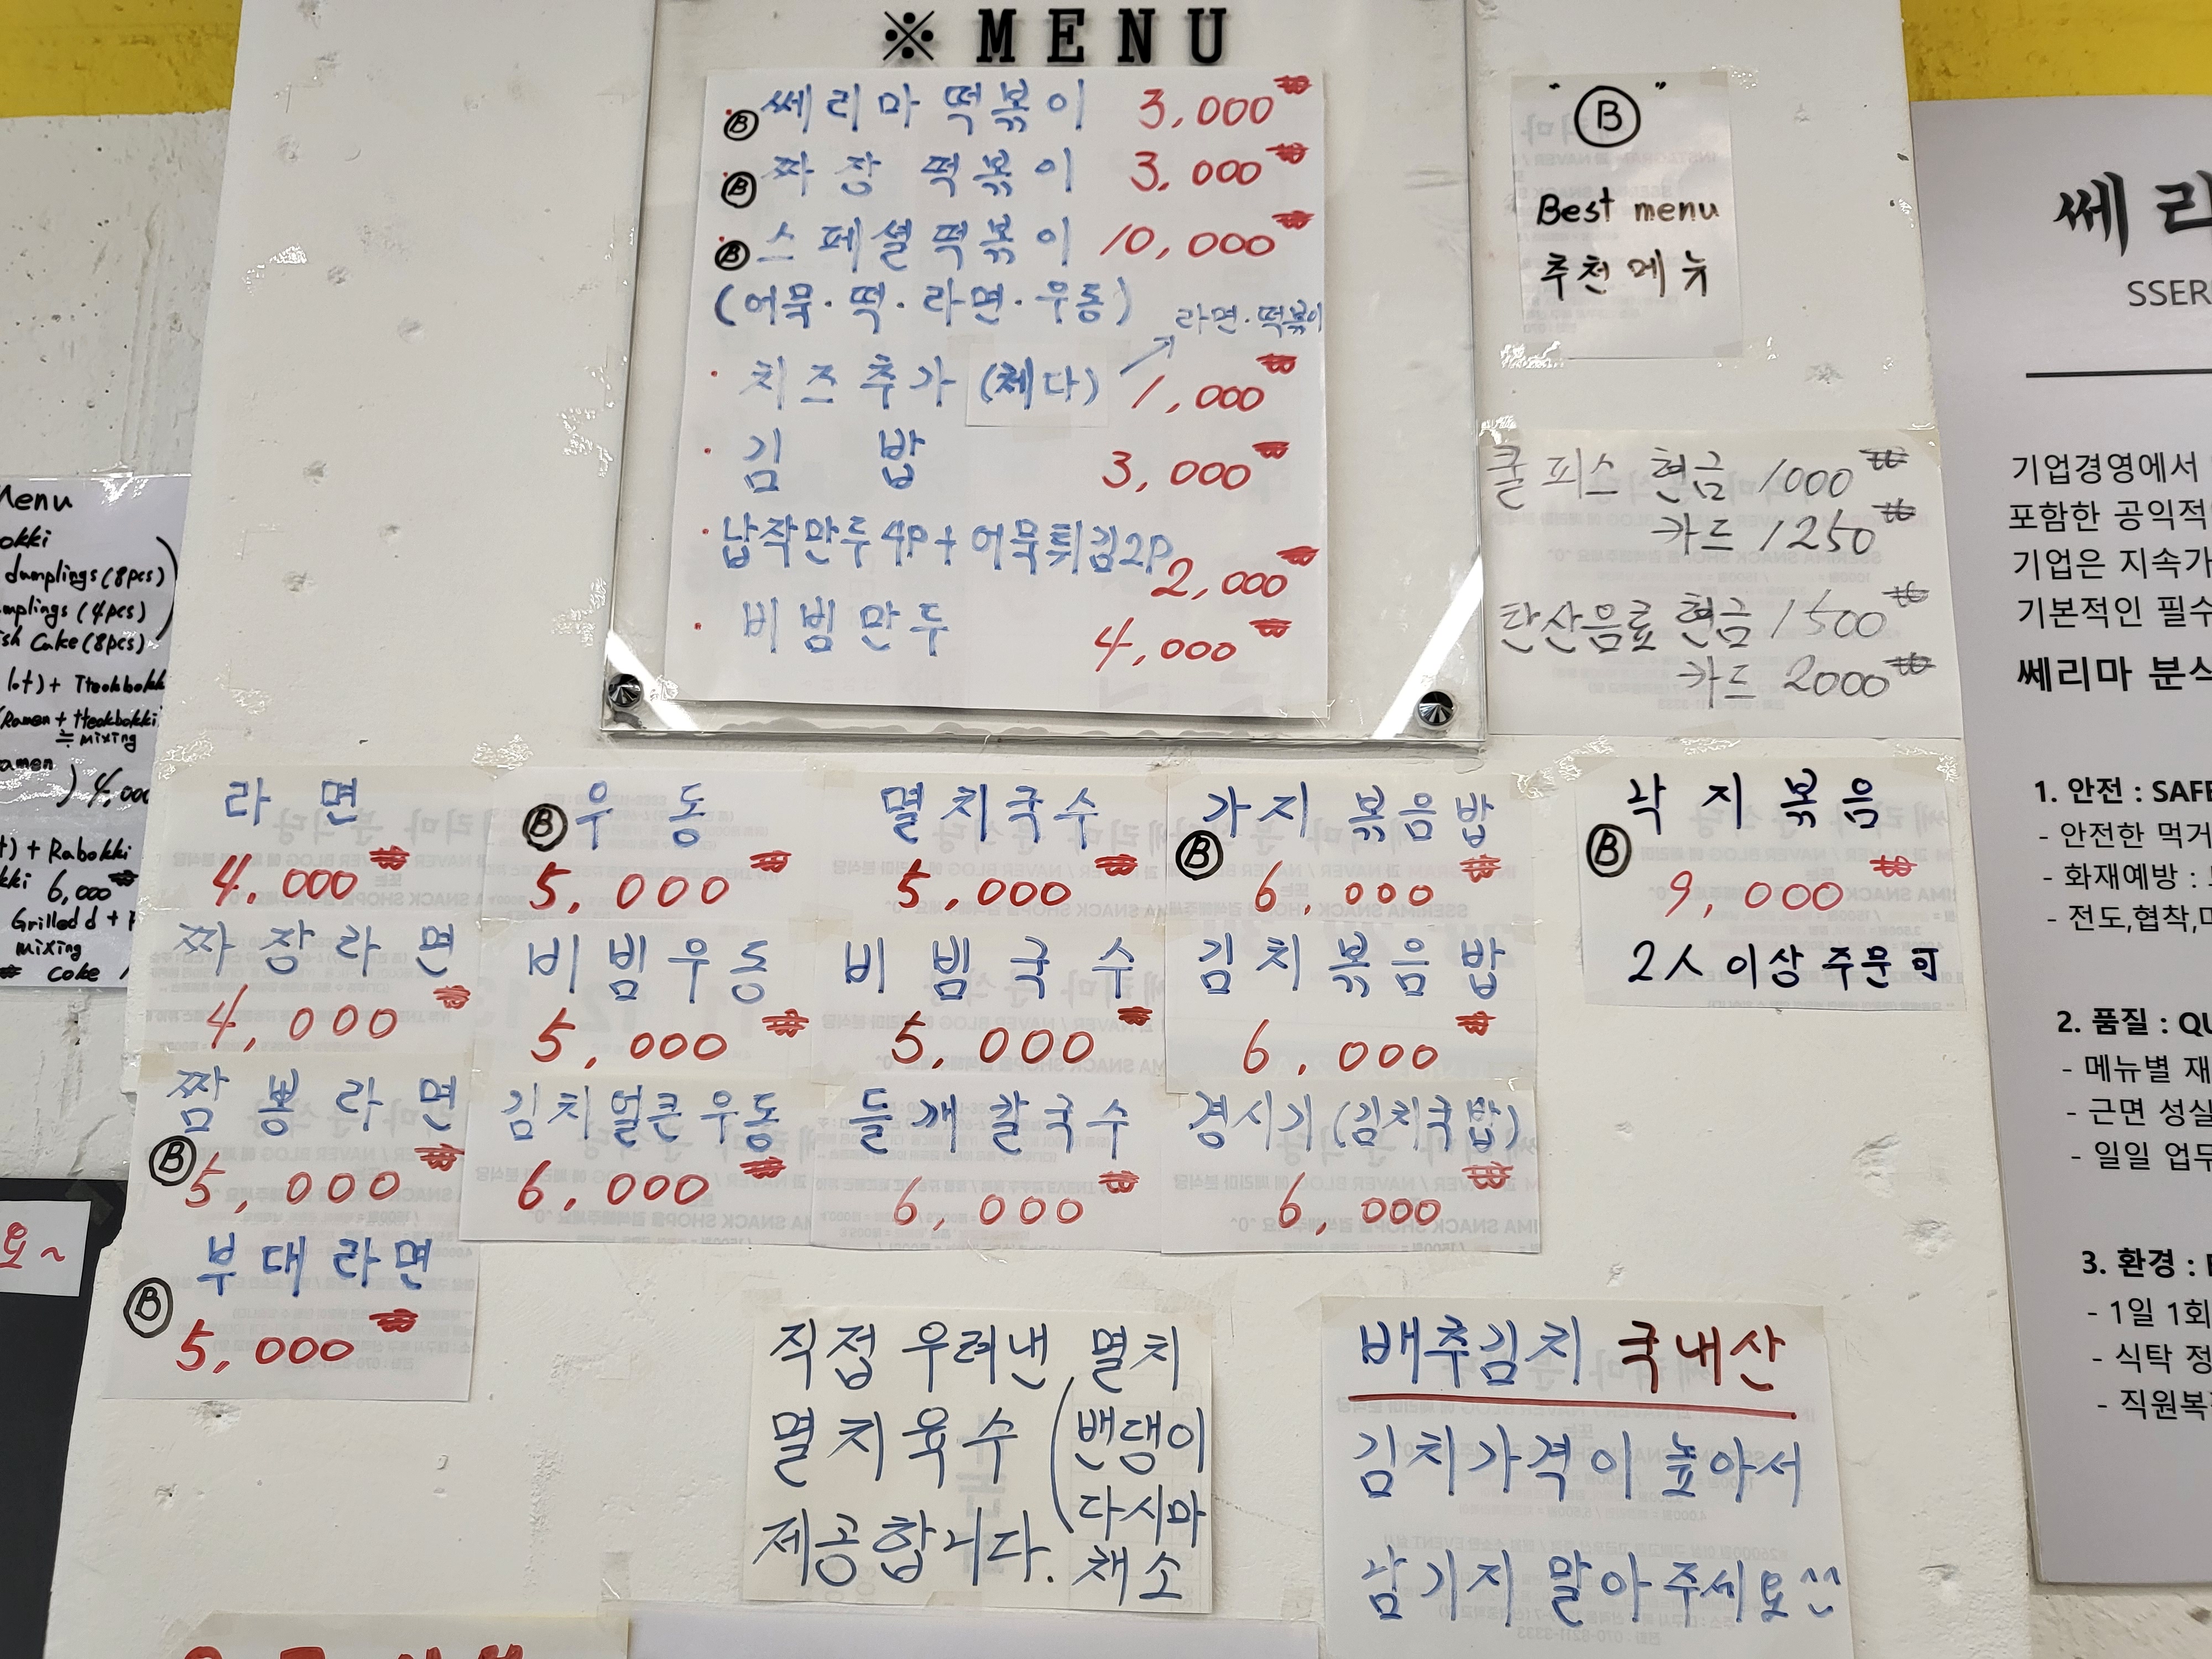 ※ MENU
Ⓑ 쎄리마 떡볶이 3,000₩
Ⓑ 짜장 떡볶이 3,000₩
Ⓑ 스페셜떡볶이 10,000₩
(어묵·떡·라면·우동)
라면·떡볶이
치즈추가 (체다) 1,000₩
김 밥 3,000₩
납작만두 4P + 어묵튀김2P
2,000₩
비빔만두 4,000₩
"Ⓑ"
Best menu
추천메뉴
쿨피스 현금 1000₩
카드 1250₩
탄산음료 현금 1500₩
카드 2000₩
라 면
4,000₩
짜장라면
4,000₩
짬뽕라면
Ⓑ 5,000₩
부대라면
Ⓑ 5,000₩
Ⓑ 우 동
5,000₩
비빔우동
5,000₩
김치얼큰우동
6,000₩
멸치국수
5,000₩
비빔국수
5,000₩
들깨칼국수
6,000₩
가지볶음밥
Ⓑ 6,000₩
김치볶음밥
6,000₩
경시기(김치국밥)
6,000₩
낙지볶음
Ⓑ 9,000₩
2人 이상 주문 可
직접 우려낸 멸치
멸치육수 (밴댕이
다시마
제공합니다. 채소
배추김치 국내산
김치가격이 높아서
남기지 말아주세요^^
Menu
okki
dumplings (8pcs)
mplings (4pcs)
sh Cake (8pcs)
lot) + Tteokbokk
(Ramen + tteokbokki
≒ mixing
amen
) 4,000
t) + Rabokki
kki 6,000₩
Grilled d +
mixing
₩ Coke
요~
쎄리
SSER
기업경영에서
포함한 공익적
기업은 지속가
기본적인 필수
쎄리마 분식
1. 안전 : SAFE
- 안전한 먹거
- 화재예방 :
- 전도,협착,
2. 품질 : QU
- 메뉴별 재
- 근면 성실
- 일일 업무
3. 환경 :
- 1일 1회
- 식탁 정
- 직원복